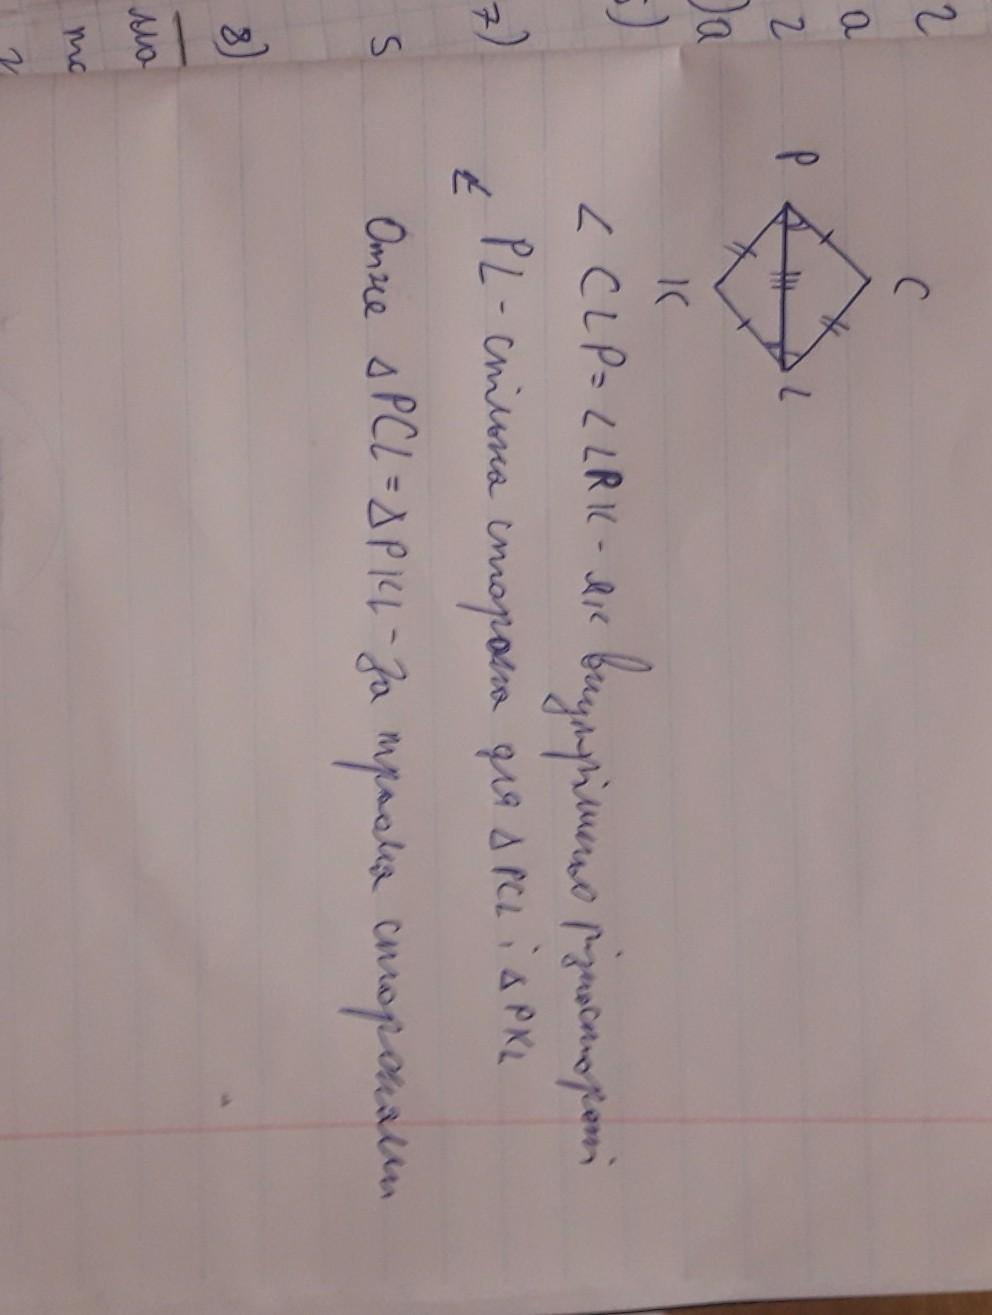 P
C
L
K
∠ CLP = ∠ LPK - як внутрішньо різносторонні
PL - спільна сторона для Δ PCL і Δ PKL
Отже Δ PCL = Δ PKL - За трьома сторонами
7)
8)